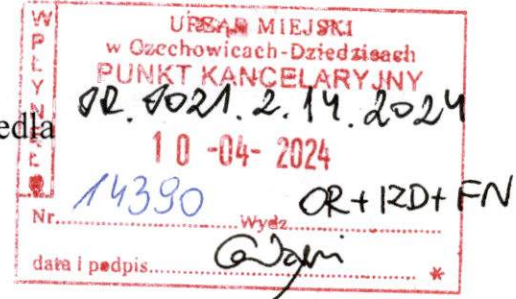 WPŁYNĘŁO
URZĄD MIEJSKI
w Czechowicach-Dziedzicach
PUNKT KANCELARYJNY
OR. 0021.2.14.2024
edla
10 -04- 2024
14390 OR+IZD+FN
Nr.......... Wydz..........
data i podpis.......... *